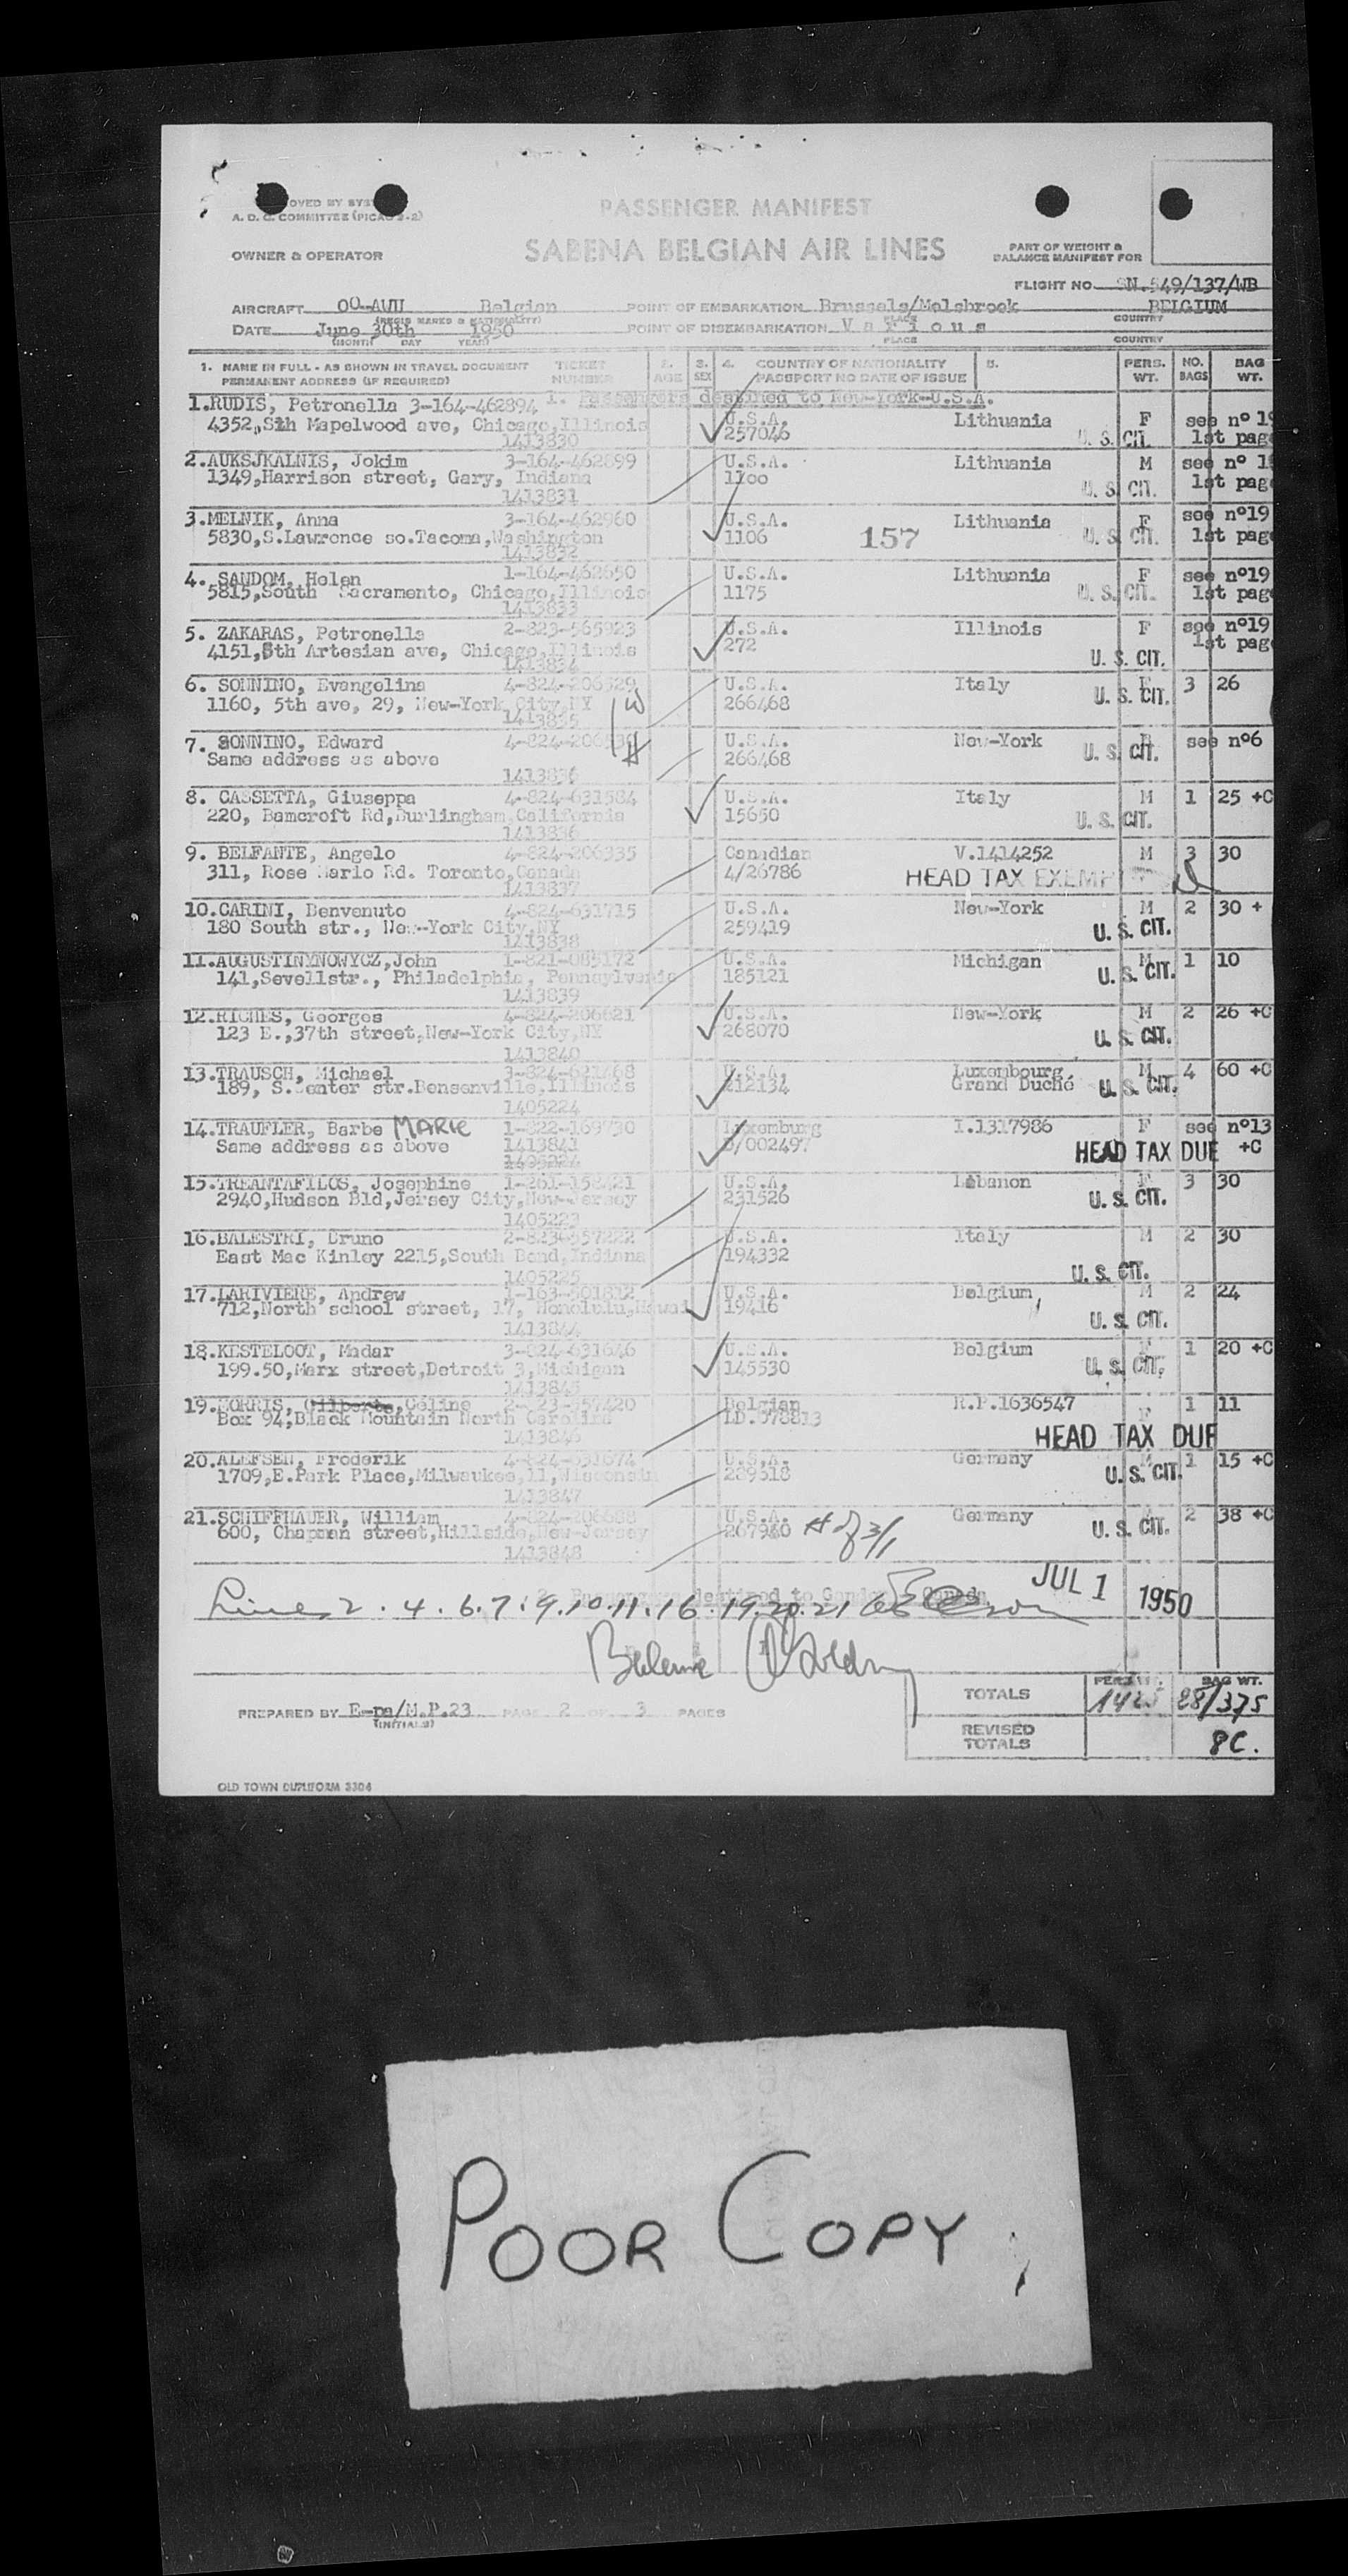 PASSENGER MANIFEST
A. D. C. COMMITTEE (PICAO 9-2)
OWNER & OPERATOR SABENA BELGIAN AIR LINES PART OF WEIGHT & BALANCE MANIFEST FOR
FLIGHT NO SN.549/137/WB
AIRCRAFT OO-AWU Belgian POINT OF EMBARKATION Brussels/Melsbroek BELGIUM
(REGIS MARKS & NATIONALITY) PLACE COUNTRY
DATE June 30th 1950 POINT OF DISEMBARKATION Various
(MONTH) DAY YEAR) PLACE COUNTRY
1. NAME IN FULL - AS SHOWN IN TRAVEL DOCUMENT TICKET 2. 3. 4. COUNTRY OF NATIONALITY 5. PERS. NO. BAG
PERMANENT ADDRESS (IF REQUIRED) NUMBER AGE SEX PASSPORT NO DATE OF ISSUE WT. BAGS WT.
1. Passengers destined to New-York-U.S.A.
1.RUDIS, Petronella 3-164-462894 U.S.A. Lithuania F see nº 19
4352,Sth Mapelwood ave, Chicago,Illinois 257046 U. S. CIT. 1st page
1413830
2.AUKSJKALNIS, Jokim 3-164-462899 U.S.A. Lithuania M see nº 1
1349,Harrison street, Gary, Indiana 1100 U. S. CIT. 1st page
1413831
3.MELNIK, Anna 3-164-462960 U.S.A. Lithuania F see nº19
5830,S.Lawrence so.Tacoma,Washington 1106 157 U. S. CIT. 1st page
1413832
4. SANDOM, Helen 1-164-462650 U.S.A. Lithuania F see nº19
5815,South Sacramento, Chicago,Illinois 1175 U. S. CIT. 1st page
1413833
5. ZAKARAS, Petronella 2-823-565923 U.S.A. Illinois F see nº19
4151,Sth Artesian ave, Chicago,Illinois 272 U. S. CIT. 1st page
1413834
6. SONNINO, Evangelina 4-824-206529 U.S.A. Italy F 3 26
1160, 5th ave, 29, New-York City,NY 266468 U. S. CIT.
1413835
7. SONNINO, Edward U.S.A. New-York see nº6
Same address as above 266468 U. S. CIT.
1413836
8. CASSETTA, Giuseppa 4-824-631584 U.S.A. Italy M 1 25 +C
220, Bamcroft Rd,Burlingham,California 15650 U. S. CIT.
1413836
9. BELFANTE, Angelo 4-824-206335 Canadian V.1414252 M 3 30
311, Rose Mario Rd. Toronto,Canada 4/26786 HEAD TAX EXEMPT
1413837
10.CARINI, Benvenuto 4-824-631715 U.S.A. New-York M 2 30 +
180 South str., New-York City,NY 259419 U. S. CIT.
1413838
11.AUGUSTINYNOWYCZ,John 1-821-085172 U.S.A. Michigan M 1 10
141,Sevellstr., Philadelphia, Pennsylvania 185121 U. S. CIT.
1413839
12.RICHES, Georges 4-824-206621 U.S.A. New-York M 2 26 +C
123 E.,37th street,New-York City,NY 268070 U. S. CIT.
1413840
13.TRAUSCH, Michael 3-824-621468 U.S.A. Luxembourg M 4 60 +C
189, S.Center str.Bensenville,Illinois 212134 Grand Duché U. S. CIT.
1405224
14.TRAUFLER, Barbe MARIE 1-822-169730 Luxemburg I.1317986 F see nº13
Same address as above 1413841 D/002497 HEAD TAX DUE +C
1405224
15.TREANTAFILOS, Josephine 1-261-158421 U.S.A. Lebanon F 3 30
2940,Hudson Bld,Jersey City,New-Jersey 231526 U. S. CIT.
1405223
16.BALESTRI, Bruno 2-823-557222 U.S.A. Italy M 2 30
East Mac Kinley 2215,South Bend,Indiana 194332 U. S. CIT.
1405225
17.LARIVIERE, Andrew 1-163-501812 U.S.A. Belgium M 2 24
712,North school street, 17, Honolulu,Hawai 19416 U. S. CIT.
1413844
18.KESTELOOT, Madar 3-824-631646 U.S.A. Belgium F 1 20 +C
199.50,Marx street,Detroit 3,Michigan 145530 U. S. CIT.
1413845
19.MORRIS, Gilberte,Céline 2-823-557420 Belgian R.P.1636547 F 1 11
Box 94,Black Mountain North Carolina LD.078813 HEAD TAX DUE
1413846
20.ALEFSEN, Frederik 4-824-631674 U.S.A. Germany M 1 15 +C
1709,E.Park Place,Milwaukee,11,Wisconsin 289318 U. S. CIT.
1413847
21.SCHIFFHAUER, William 4-824-206688 U.S.A. Germany 2 38 +C
600, Chapman street,Hillside,New-Jersey 267980 U. S. CIT.
1413848
2. Passengers destined to Canada JUL 1 1950
Lines 2 . 4 . 6.7.9.10.11.16.19.20.21
TOTALS PERS WT. 1425 28/375 BAG WT.
PREPARED BY E-pa/M.P.23 PAGE 2 OF 3 PAGES
(INITIALS)
REVISED TOTALS 8C.
OLD TOWN DUPLIFORM 3304
POOR COPY